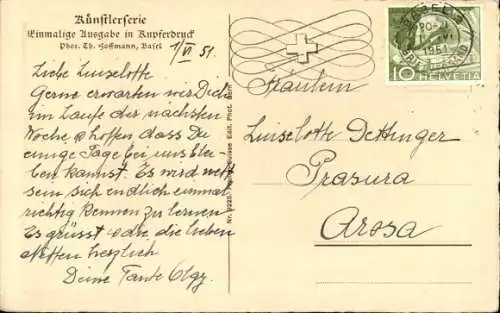 Künstlerserie
Einmalige Ausgabe in Kupferdruck
Phot. Th. Hoffmann, Basel
1/VI 51.
Liebe Luiselotte
Gerne erwarten wir Dich
im Laufe der nächsten
Woche & hoffen dass Du
einige Tage bei uns blei-
ben kannst. Es wird nett
sein sich endlich einmal
richtig kennen zu lernen
Es grüsst die lieben
herzlich
Deine Tante Olgy.
BASEL
1951
10 HELVETIA
Fräulein
Luiselotte Dettinger
Prasura
Arosa